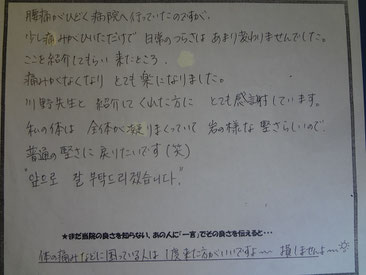 腰痛がひどく病院へ行っていたのですが、
少し痛みがひいただけで 日常のつらさは あまり変わりませんでした。
ここを紹介してもらい 来たところ、
痛みがなくなり とても楽になりました。
川野先生と 紹介してくれた方に とても感謝しています。
私の体は 全体が凝りまくっていて 岩の様な 堅さらしいので、
普通の堅さに 戻りたいです(笑)
"앞으로 잘 부탁드리겠습니다."
★まだ当院の良さを知らない、あの人に「一言」でその良さを伝えると・・・
体の痛みなどに困っている人は 1度来た方がいいですよ〜 損しませんよ〜☆